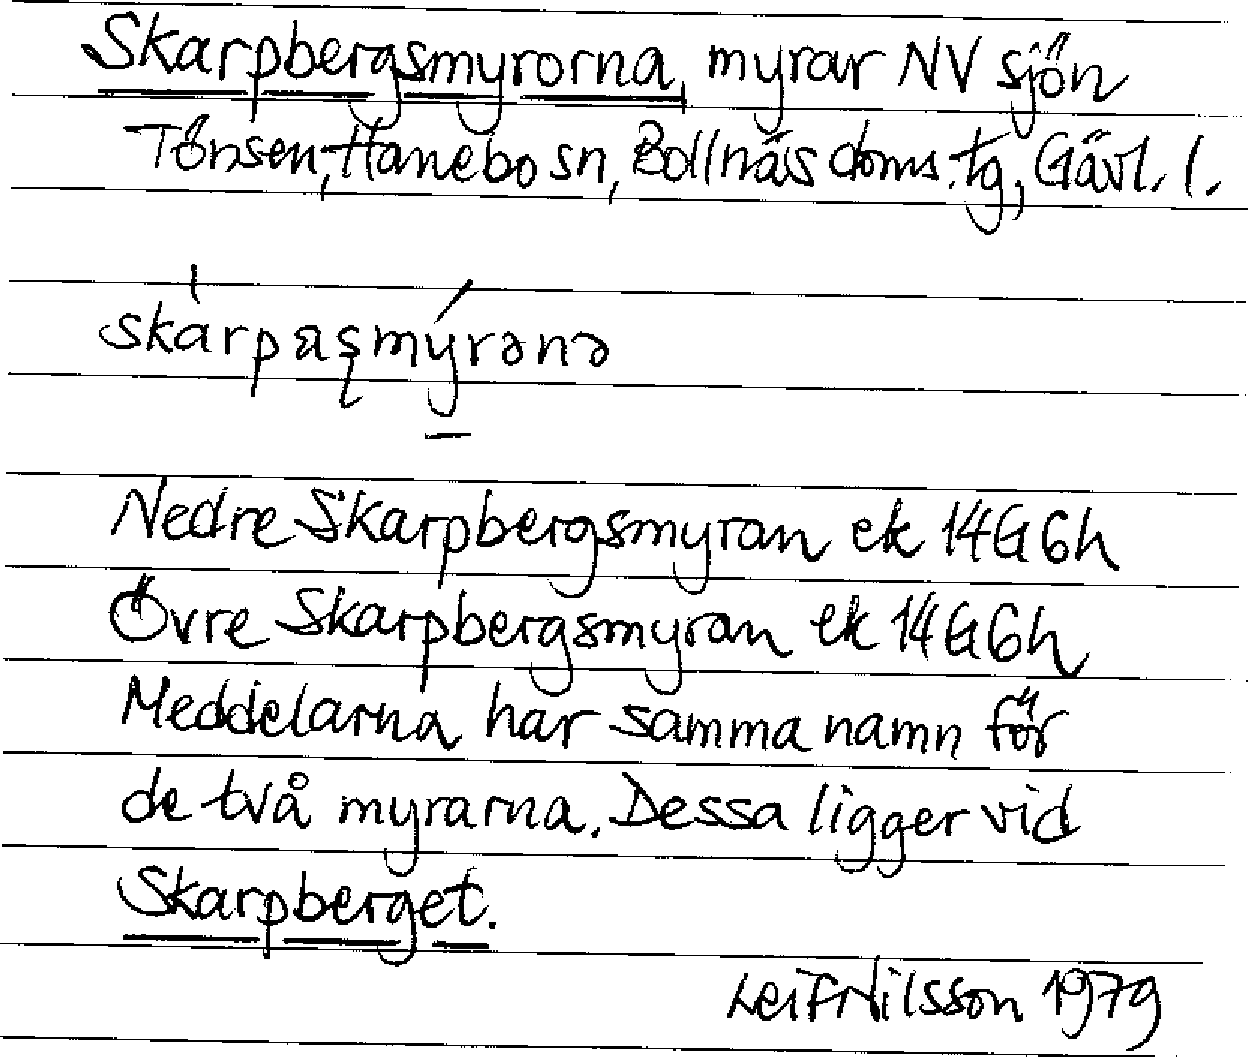 Skarpbergsmyrorna, myrar NV sjön
Tönsen, Hanebo sn, Bollnäs doms. tg, Gävl. l.
Nedre Skarpbergsmyran ek 14G6h
Övre Skarpbergsmyran ek 14G6h
Meddelarna har samma namn för
de två myrarna. Dessa ligger vid
Skarpberget.
Leif Nilsson 1979